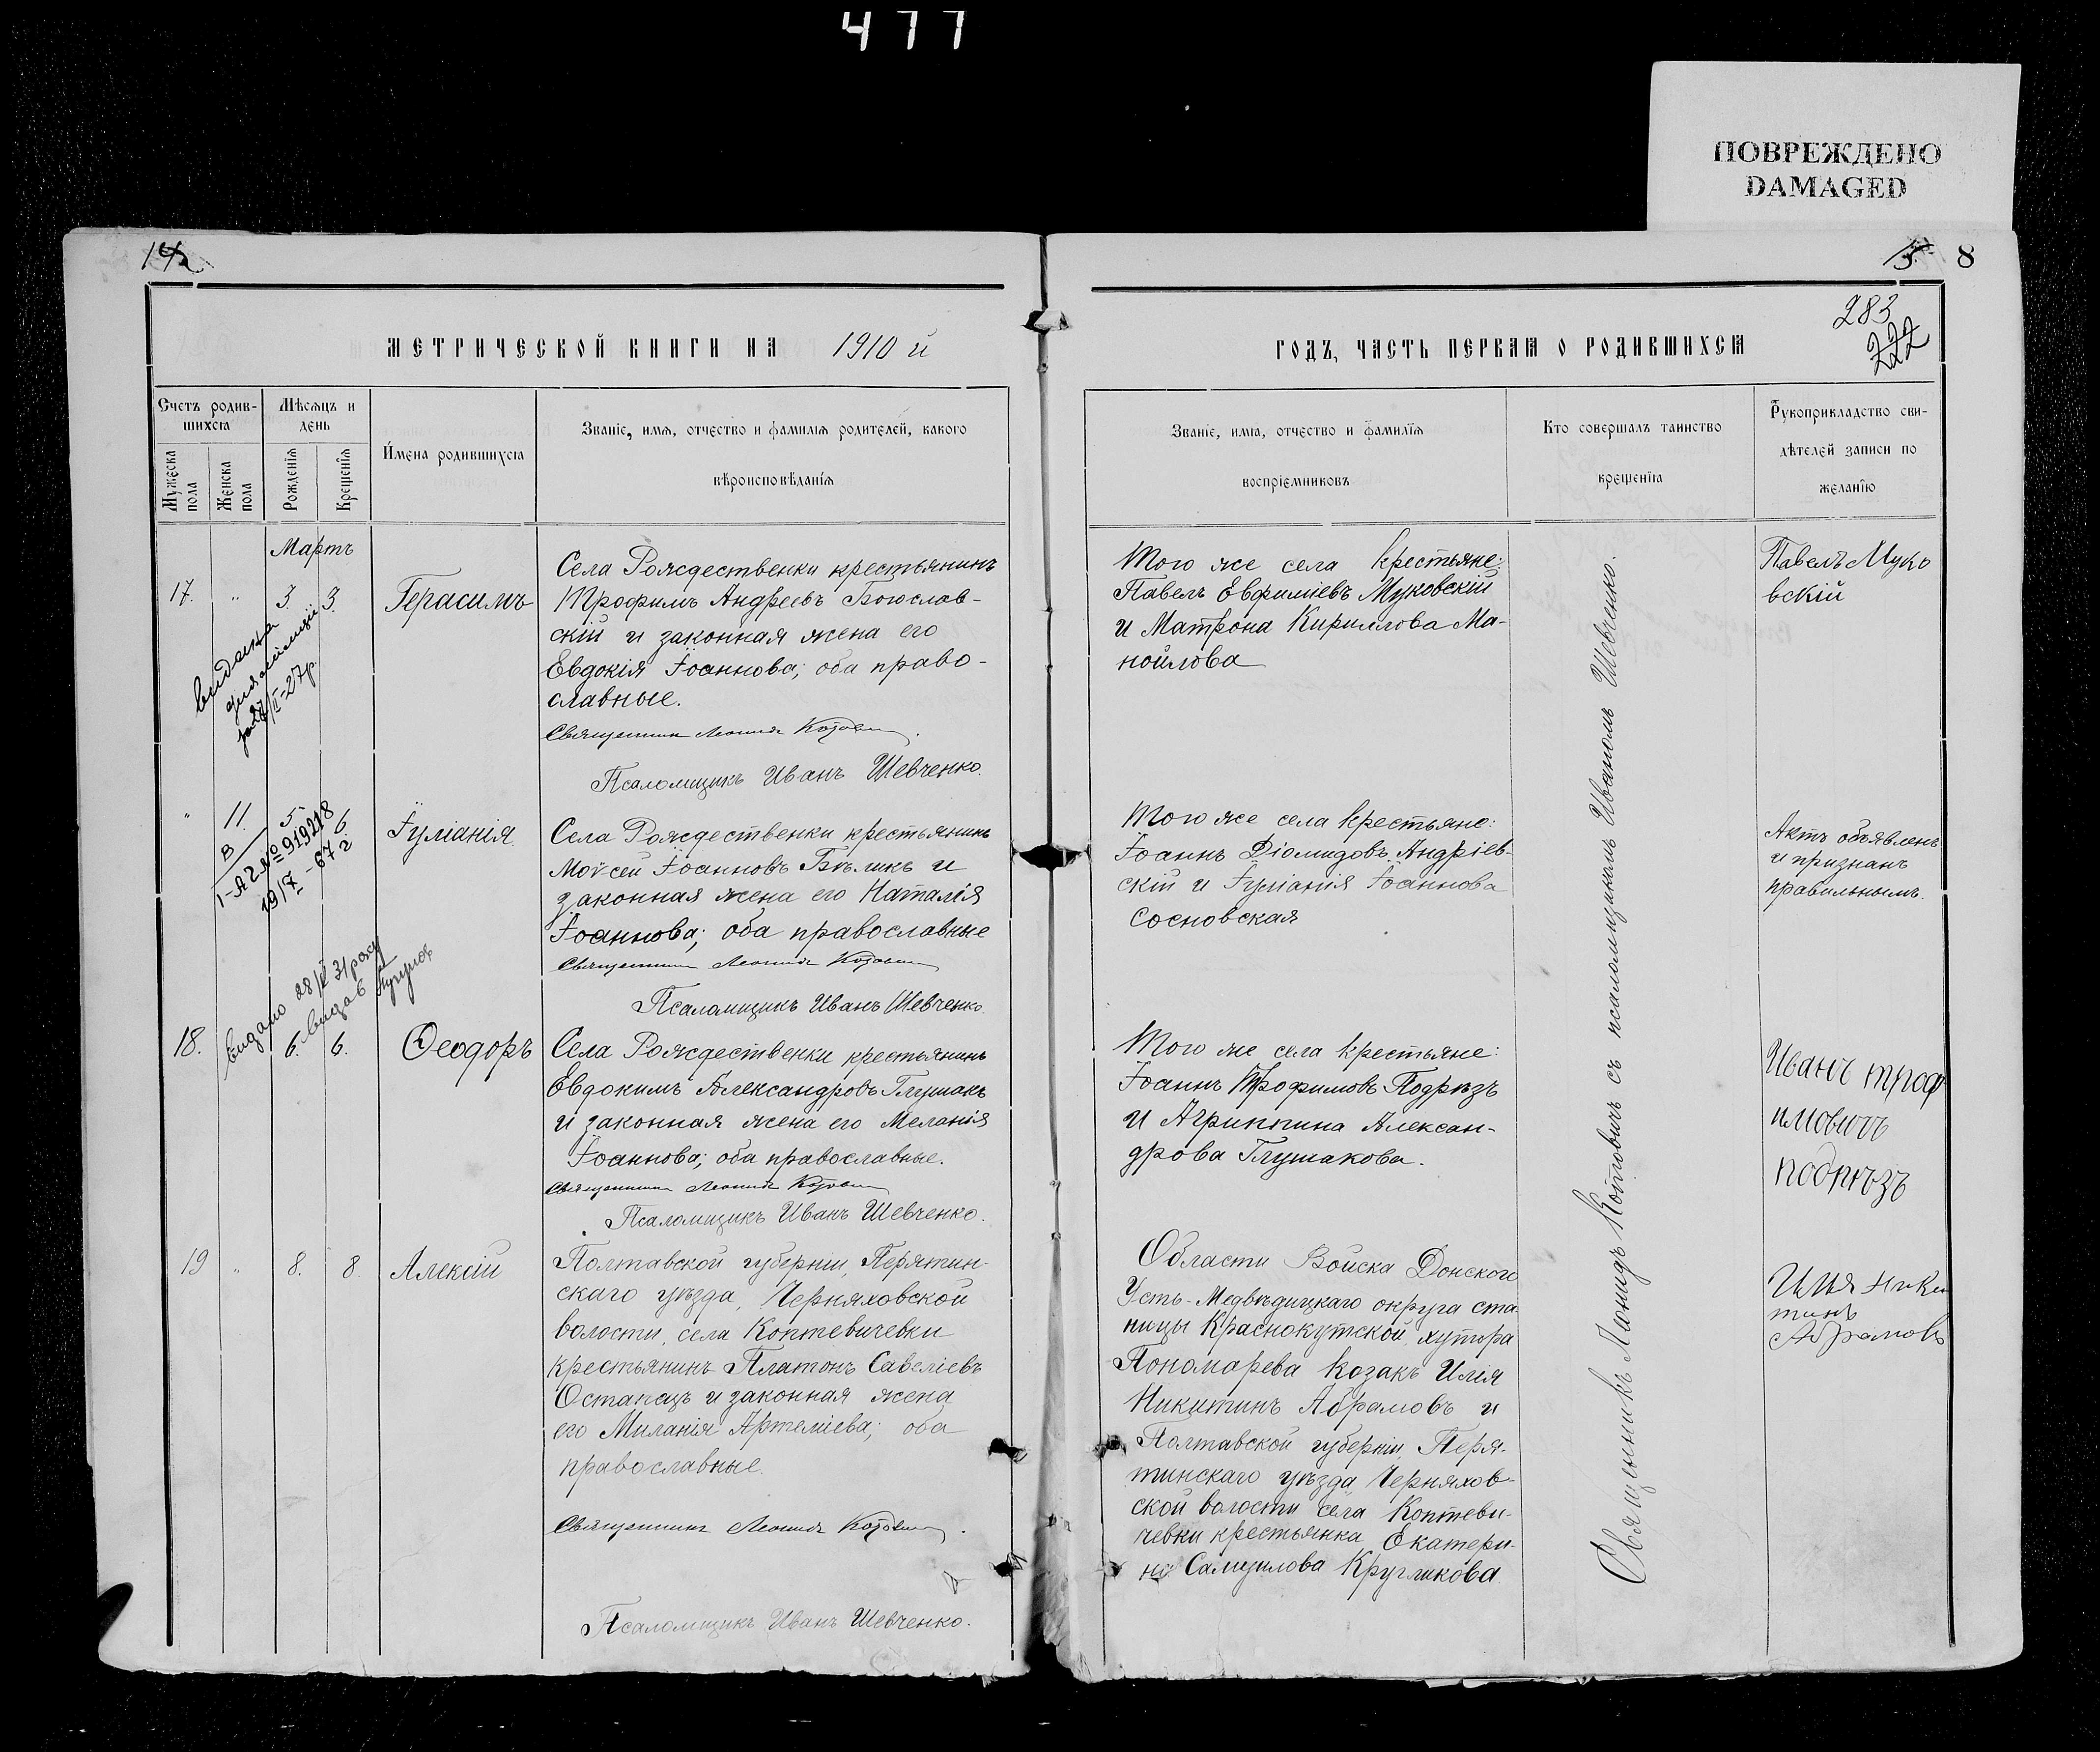 477
ПОВРЕЖДЕНО
DAMAGED
8
283
222
МЕТРИЧЕСКОЙ КНИГИ НА 1910 й
ГОДЪ, ЧАСТЬ ПЕРВАЯ О РОДИВШИХСЯ
Счетъ родив-
шихся
Мужеска пола
Женска пола
Мѣсяцъ и
день
Рожденія
Крещенія
Имена родившихся
Званіе, имя, отчество и фамилія родителей, какого
вѣроисповѣданія
Званіе, имя, отчество и фамилія
воспріемниковъ
Кто совершалъ таинство
крещенія
Рукоприкладство сви-
дѣтелей записи по
желанію
Мартъ
17. " 3. 3.
Герасимъ
Села Рождественки крестьянинъ
Трофимъ Андреевъ Богослав-
скій и законная жена его
Евдокія Іоаннова; оба право-
славные.
Священникъ Леонидъ Котович
Псаломщикъ Иванъ Шевченко.
Того же села крестьяне:
Павелъ Евфиміевъ Муковскій
и Матрона Кириллова Ма-
нойлова
Павелъ Муко
вскій
видана
27/II-27р
" 11. 5 6
Іуліанія.
В
1-АЧЯ № 919218
19/7 - 67 г
Села Рождественки крестьянинъ
Моѵсей Іоанновъ Бѣликъ и
законная жена его Наталія
Іоаннова; оба православные
Священникъ Леонидъ Котович
Псаломщикъ Иванъ Шевченко
Того же села крестьяне:
Іоаннъ Діомидовъ Андріев-
скій и Іуліанія Іоаннова
Сосновская
Актъ объявленъ
и признанъ
правильнымъ.
видано 28/V 31 року
видав
18. 6. 6.
Ѳеодоръ
Села Рождественки крестьянинъ
Евдокимъ Александровъ Глушакъ
и законная жена его Меланія
Іоаннова; оба православные.
Священникъ Леонидъ Котович
Псаломщикъ Иванъ Шевченко.
Того же села крестьяне:
Іоаннъ Трофимовъ Подрѣзъ
и Агриппина Алексан-
дрова Глушакова.
Иванъ троф
имовичъ
подрѣзъ
19 " 8. 8.
Алексій
Полтавской губерніи, Пирятин-
скаго уѣзда, Черняховской
волости, села Коптевичевки
крестьянинъ Платонъ Савеліевъ
Остапецъ и законная жена
его Миланія Артеміева; оба
православные.
Священникъ Леонидъ Котович
Псаломщикъ Иванъ Шевченко.
Области Войска Донского
Усть-Медвѣдицкаго округа ста-
ницы Краснокутской, хутора
Пономарева Козакъ Илія
Никитинъ Абрамовъ и
Полтавской губерніи, Пиря-
тинскаго уѣзда Черняхов-
ской волости села Коптеви-
чевки крестьянка Екатери-
на Самуилова Кругликова
Илья Ники
тинъ
Абрамовъ
Священникъ Леонидъ Котовичъ съ псаломщикомъ Иваномъ Шевченко.